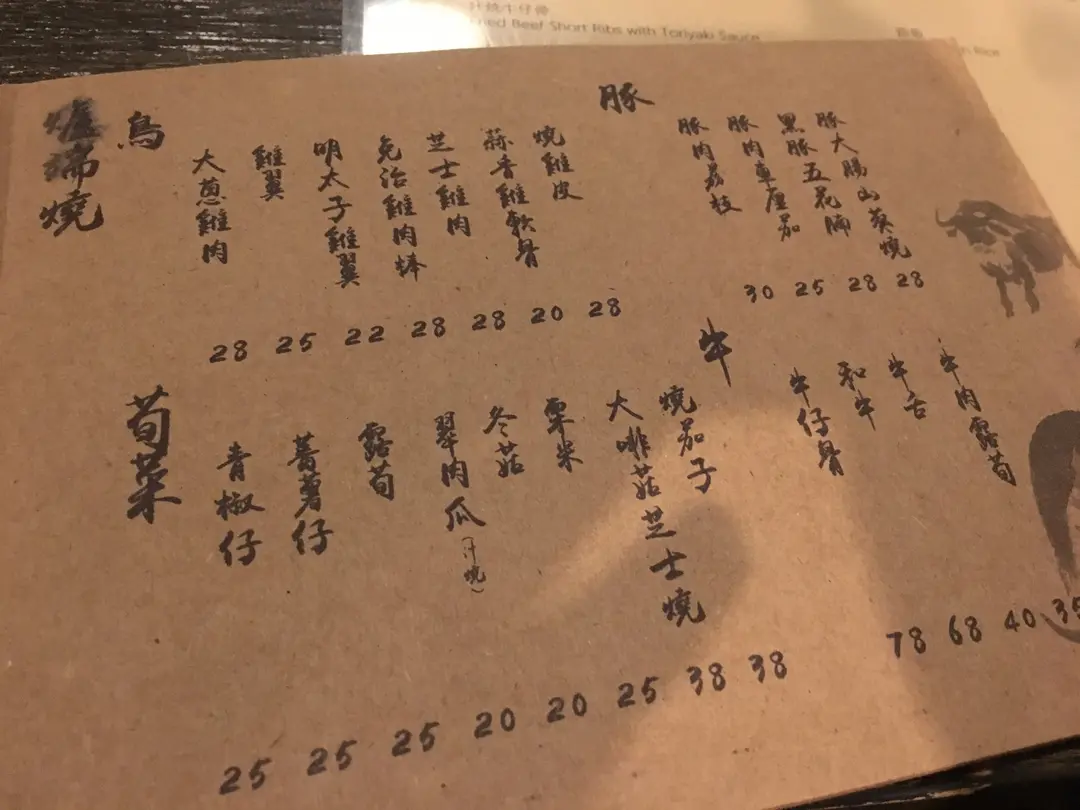 燒牛仔骨
Fried Beef Short Ribs with Toriyaki Sauce
Rice
爐端燒
鳥
大蔥雞肉
雞翼
明太子雞翼
免治雞肉棒
芝士雞肉
蒜香雞軟骨
燒雞皮
28 25 22 28 28 20 28
豚
豚肉荔枝
豚肉車厘茄
黑豚五花腩
豚大腸山葵燒
30 25 28 28
荀菜
青椒仔
蕃薯仔
露荀
翠肉瓜(汁燒)
冬菇
粟米
大啡菇芝士燒
燒茄子
25 25 25 20 20 25 38 38
牛
牛仔骨
和牛
牛舌
牛肉露荀
78 68 40 35